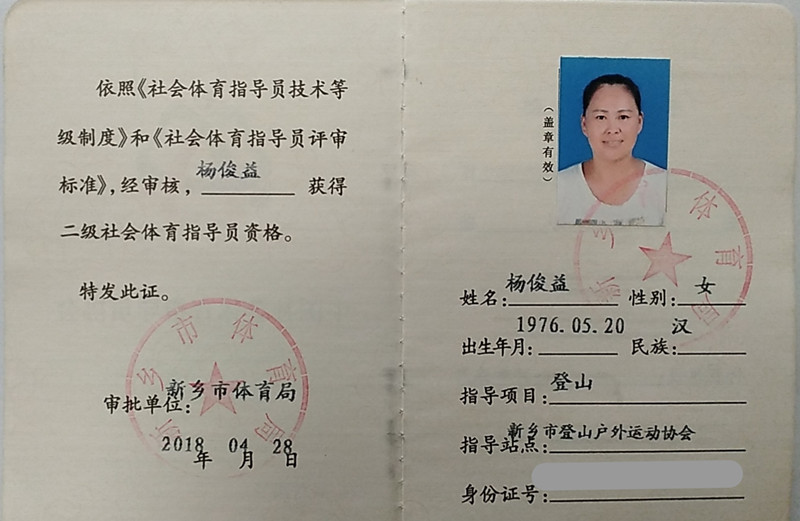 依照《社会体育指导员技术等
级制度》和《社会体育指导员评审
标准》，经审核，杨俊益 获得
二级社会体育指导员资格。
特发此证。
新乡市体育局
审批单位：新乡市体育局
2018年 04月 28日
（盖章有效）
新乡市体育局
姓名：杨俊益 性别：女
出生年月：1976.05.20 民族：汉
指导项目：登山
指导站点：新乡市登山户外运动协会
身份证号：